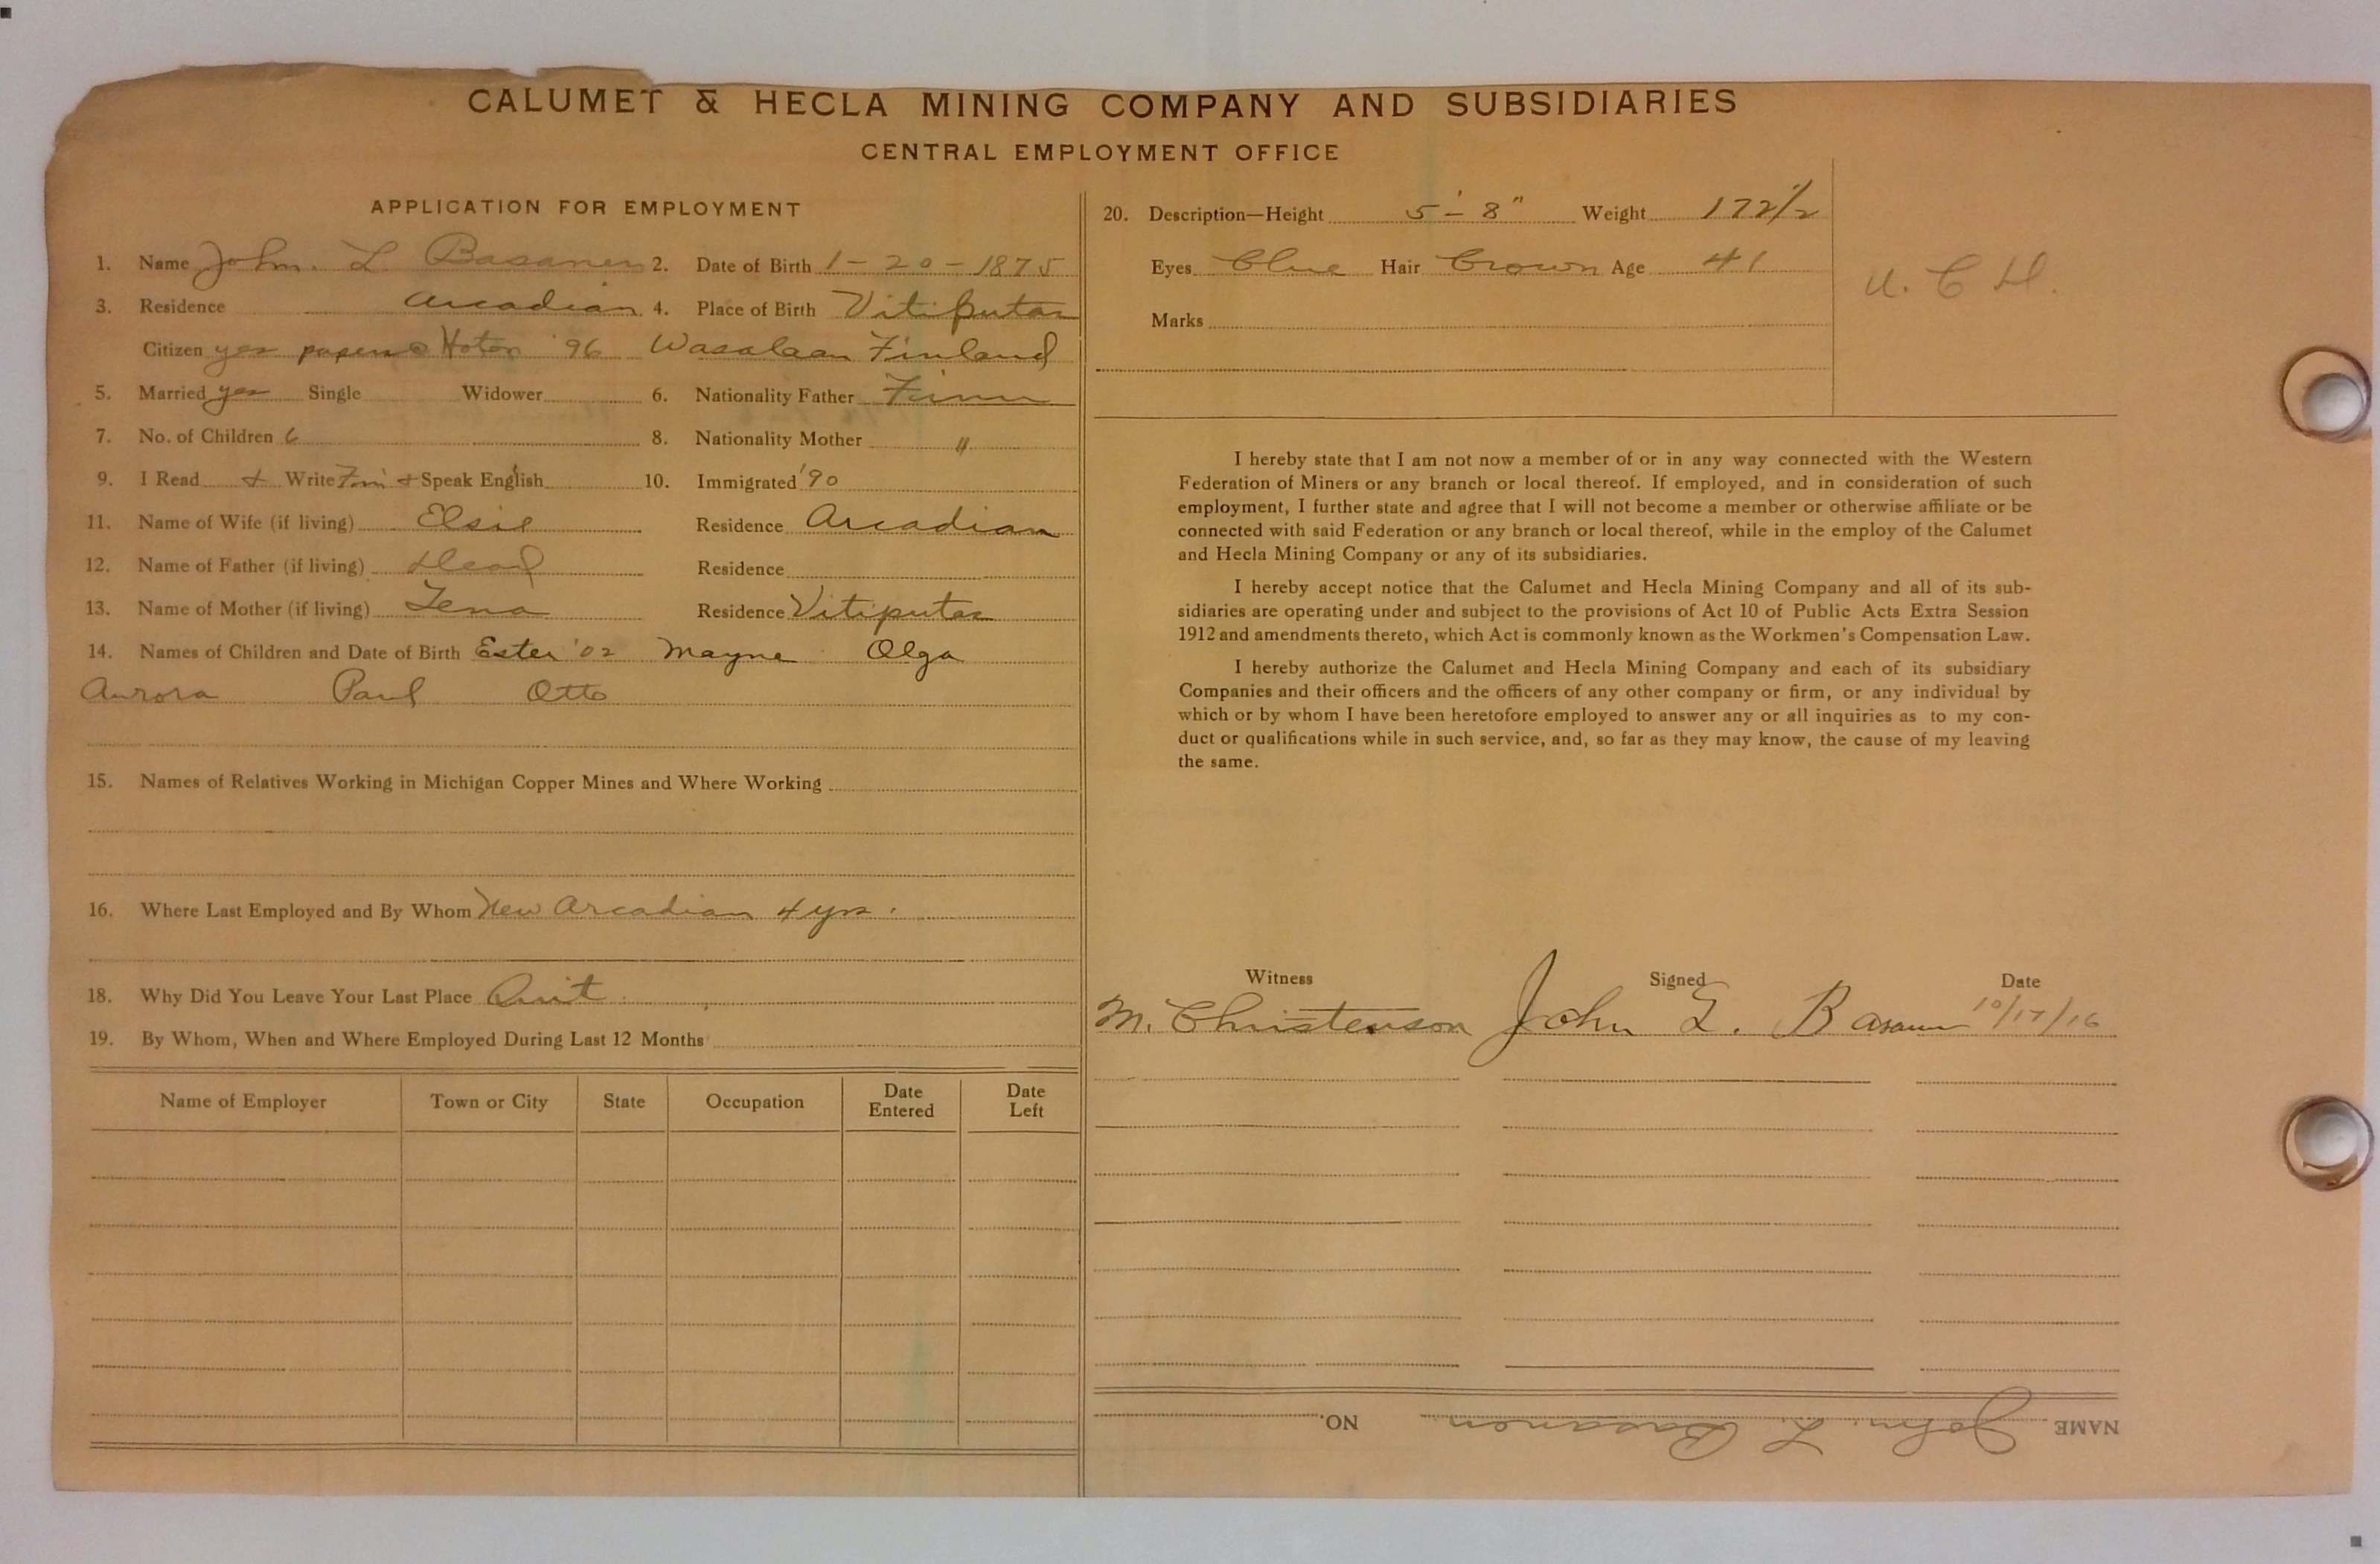 CALUMET & HECLA MINING COMPANY AND SUBSIDIARIES
CENTRAL EMPLOYMENT OFFICE
APPLICATION FOR EMPLOYMENT
1. Name John. L. Basanen 2. Date of Birth 1-20-1875
3. Residence Arcadian 4. Place of Birth Vitiputas
Citizen yes papers @ Hoton '96 Wasalaan Finland
5. Married yes Single Widower 6. Nationality Father Finn
7. No. of Children 6 8. Nationality Mother "
9. I Read + Write Finn + Speak English 10. Immigrated '90
11. Name of Wife (if living) Elsie Residence Arcadian
12. Name of Father (if living) Dead Residence
13. Name of Mother (if living) Lena Residence Vitiputas
14. Names of Children and Date of Birth Ester '02 Mayme Olga
Aurora Paul Otto
15. Names of Relatives Working in Michigan Copper Mines and Where Working
16. Where Last Employed and By Whom New Arcadian 4 yrs.
18. Why Did You Leave Your Last Place Quit
19. By Whom, When and Where Employed During Last 12 Months
Name of Employer Town or City State Occupation Date Entered Date Left
20. Description—Height 5'-8" Weight 172 1/2
Eyes Blue Hair Brown Age 41
Marks
U. C H.
I hereby state that I am not now a member of or in any way connected with the Western
Federation of Miners or any branch or local thereof. If employed, and in consideration of such
employment, I further state and agree that I will not become a member or otherwise affiliate or be
connected with said Federation or any branch or local thereof, while in the employ of the Calumet
and Hecla Mining Company or any of its subsidiaries.
I hereby accept notice that the Calumet and Hecla Mining Company and all of its sub-
sidiaries are operating under and subject to the provisions of Act 10 of Public Acts Extra Session
1912 and amendments thereto, which Act is commonly known as the Workmen's Compensation Law.
I hereby authorize the Calumet and Hecla Mining Company and each of its subsidiary
Companies and their officers and the officers of any other company or firm, or any individual by
which or by whom I have been heretofore employed to answer any or all inquiries as to my con-
duct or qualifications while in such service, and, so far as they may know, the cause of my leaving
the same.
Witness Signed Date
M. Christenson John L. Basanen 10/17/16
NAME John. L. Basanen NO.